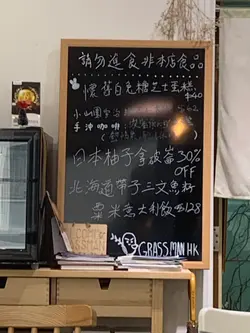 請勿進食非本店食品
懷舊白兔糖芝士蛋糕
$40
小山園
手沖咖啡:
日本柚子拿破崙30%
OFF
北海道帶子三文魚籽
粟米意大利飯 $128
GRASSMAN HK